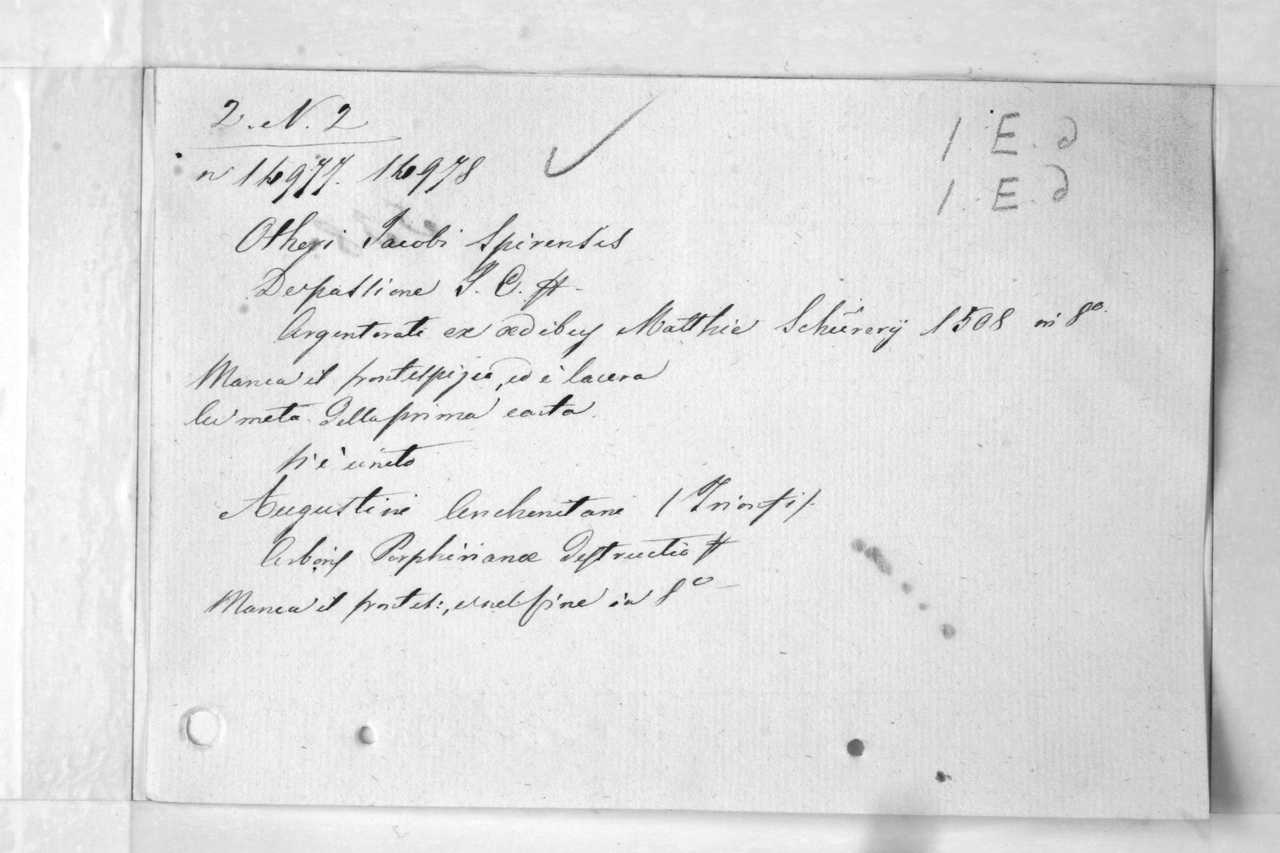 2. N. 2
1. E. 2
1. E. 2
n 14977. 14978
Otheri Jacobi Spirensis
De passione J. C. #
Argentorati ex ædibus Matthie Schürerij 1508 in 8º
Manca il frontespizio, ed è lacera
la metà della prima carta.
vi è unito
Augustini Anchonitani (Trionfi)
Arboris Porphirianæ Destructio #
Manca il frontes:, e nel fine in 8º